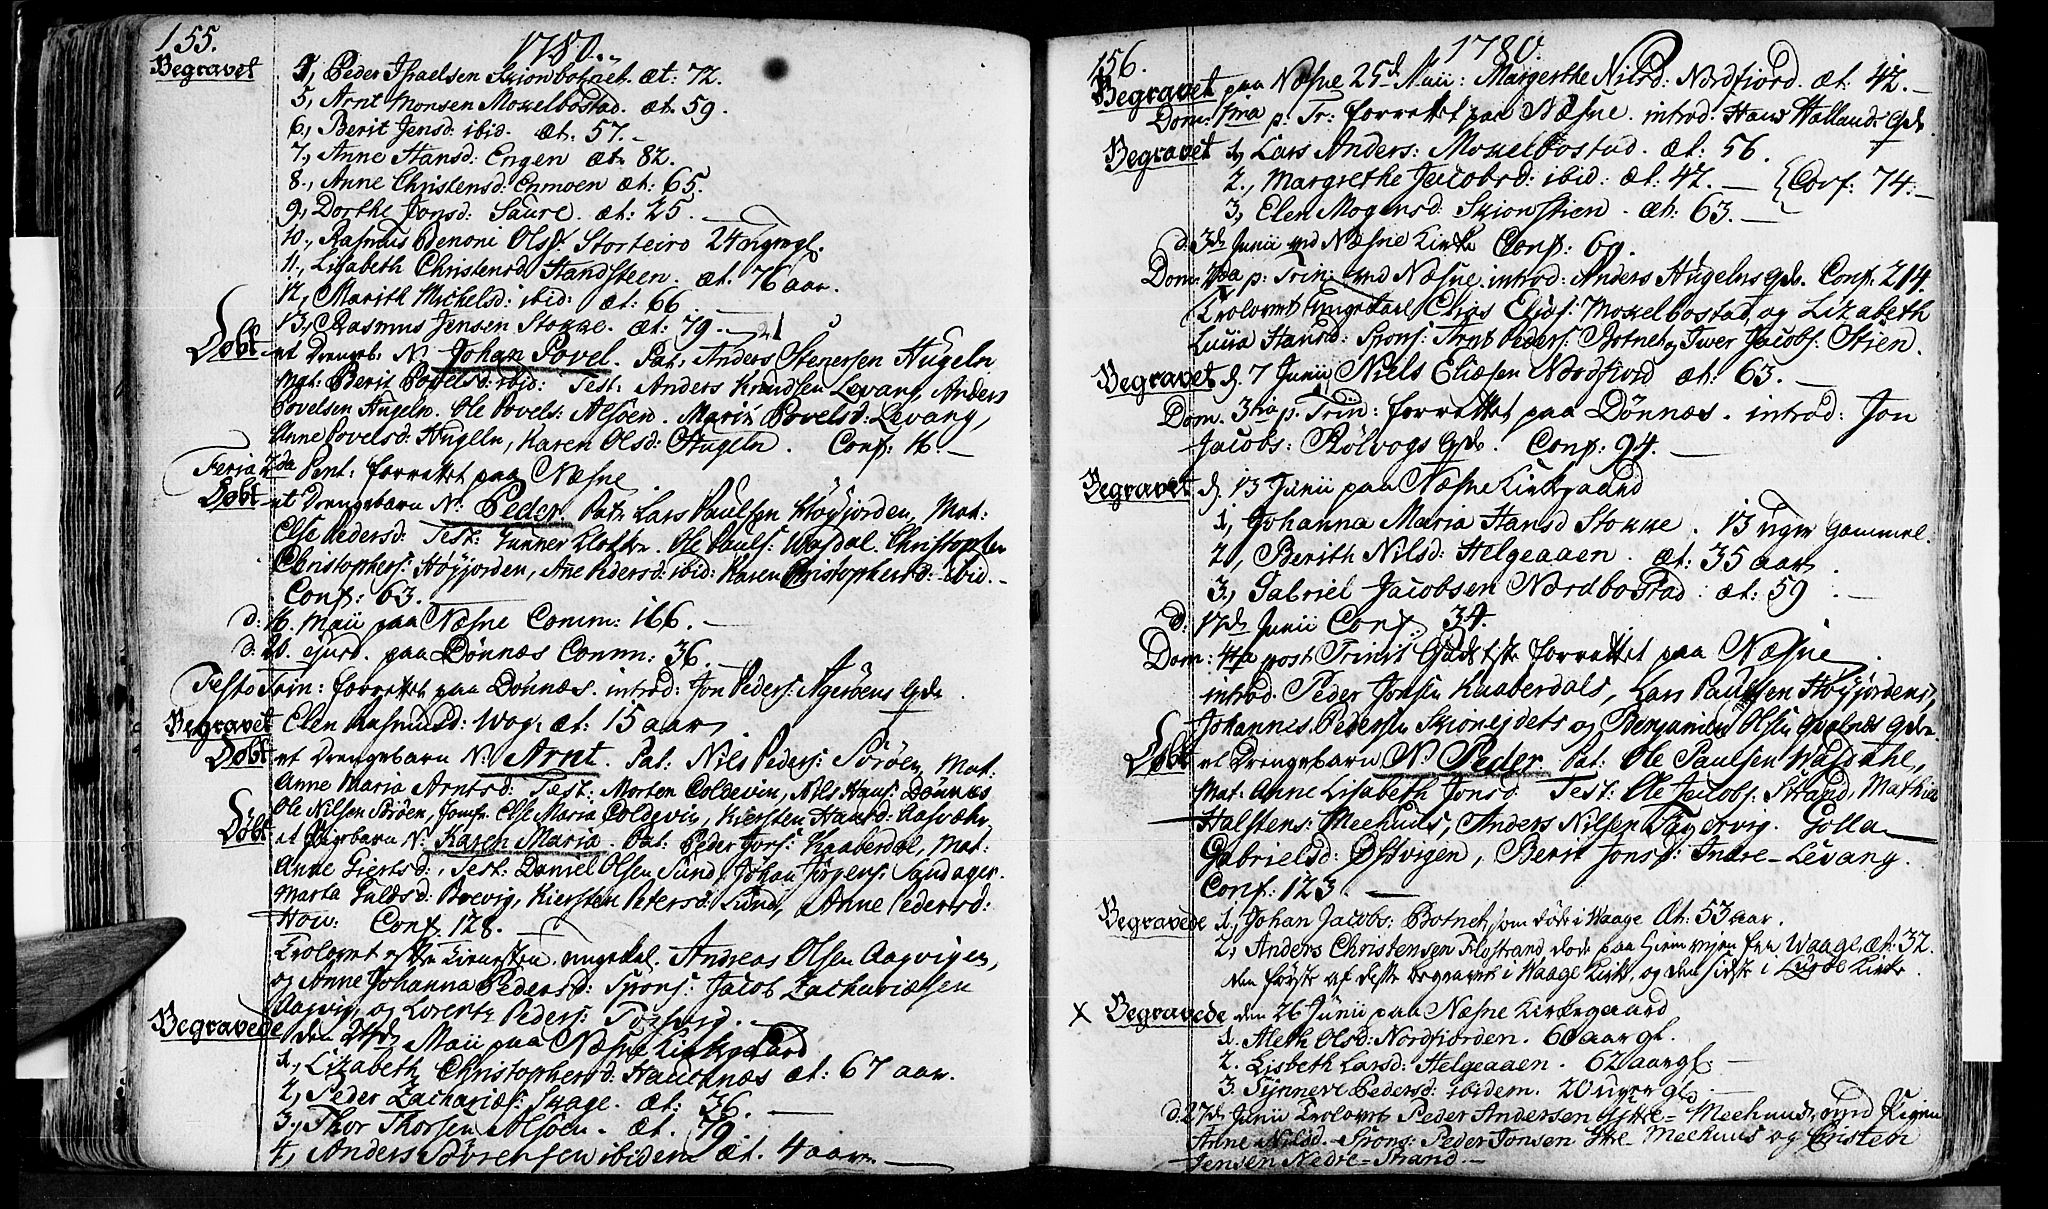 155.
1780.
Begravet
4, Peder Israelsen Skionbotnet æt: 72.
5, Arnt Monsen Moxelbostad æt: 59.
6, Berit Jensd: ibid. æt: 57.
7, Anne Hansd: Engen æt: 82.
8, Anne Christensd: Enmoen æt: 65.
9, Dorthe Jonsd: Saure. æt: 25.
10, Rasmus Benoni Ols: Storteiro 24 uger gl.
11, Lisabeth Christensd Handsteen. æt: 76 aar.
12, Marith Michelsd: ibid: æt: 66
13, Rasmus Jensen Stokke. æt: 79.
Døbt et Drengeb: N: Johan Povel. Pat: Anders Stenersen Hugeln
Mat: Berit Povelsd: ibid: Test: Anders Knudsen Levang, Anders
Povelsen Hugeln. Ole Povels: Alsøen. Marit Povelsd: Levang,
Anne Povelsd: Hugeln, Karen Olsd: Hugeln. Conf: 16.
Feria 2da Pent: forrettet paa Næsne.
Døbt et Drengebarn N: Peder. Pat: Lars Paulsen Høyjorden, Mat:
Else Pedersd: Test: Gunner Klokker. Ole Pauls: Wasdal. Christopher
Christophers: Høyjorden, Anne Pedersd: ibid: Karen Christophersd: ibid.
Conf: 63.
d: 16. Maii paa Næsne Comm: 166.
d. 20. ejusd. paa Dønnæs Comm: 36.
Festo Trin: forrettet paa Dønnæs. introd: Jon Peders: Agerøens Qde.
Begravet Elen Rasmusd: Wog. æt: 15 aar
Døbt et Drengebarn N: Arnt. Pat: Nils Peders: Sørøen, Mat:
Anne Maria Arntsd: Test: Morten Coldevin, Nils Hans: Dønnæs
Ole Nilsen Sørøen, Jomfr. Else Maria Coldevin, Kiersten Hansd: Aasvær
Døbt et Pigebarn N: Karen Maria. Pat: Peder Jons: Kaaberdal, Mat:
Anne Giertsd: Test: Daniel Olsen Sund, Johan Jørgens: Sandager.
Marta Galdsd: Brevig, Kiersten Petersd: Sund, Anne Pedersd:
Hov: Conf. 128.
Trolovet ungekal. Andreas Olsen Aagvigen,
og Anne Johanna Pedersd: Spons: Jacob Zachariæsen
Aagvig, og Lorentz Peders:
Begravede den 24de Maii paa Næsne Kirkegaard
1, Lizabeth Christophersd: Hauchnæs æt: 67 aar.
2, Peder Zacharies: Skage. æt: 36.
3, Thor Thorsen Alsøen. æt. 79.
4, Anders Sørensen ibidem æt. 4 aar
156.
1780.
Begravet paa Næsne 25de Maii: Margrethe Nilsd: Nordfiord æt: 42.
Dom: 1ma p. Tr: forrettet paa Næsne. introd: Hans Hællands Qde.
Begravet 1, Lars Anders: Moxelbostad. æt: 56.
2, Margrethe Jacobsd: ibid: æt: 42. Conf: 74.
3, Elen Mogensd: Skionstien. æt: 63.
d. 3de Junii ved Næsne Kirke Conf: 69.
Dom: 2da p: Trin: ved Næsne. introd: Anders Hugelns Qde. Conf. 214.
Trolovet Ungekarl Elias Elias: Moxelbostad, og Lizabeth
Lucia Hansd: Spons: Arnt Peders: Botnet og Iwer Jacobs: Stien.
Begravet d. 7 Junii Niels Eliæsen Nordfiord æt: 63.
Dom. 3tia p. Trin: forrettet paa Dønnæs. introd: Jon
Jacobs: Rølvogs Qde. Conf: 94.
Begravet d. 13 Junii paa Næsne Kirkegaard
1, Johanna Maria Hansd Stokke. 13 uger gammel.
2, Berith Nilsd: Helgeaaen. æt: 35 aar.
3, Gabriel Jacobsen Nordbostad: æt: 59.
d: 17de Junii Conf. 34.
Dom: 4ta post Trinit forrettet paa Næsne.
introd. Peder Jonsen Kaaberdals, Lars Paulsen Høyjordens,
Johannes Pedersen Skionejdets og Benjamin Olsen
Døbt et Drengebarn N: Peder. Pat: Ole Paulsen Wasdahl,
Mat: Anne Lisabeth Jonsd: Test: Ole Jacobs: Strand, Mathias
Halstens: Meehuus, Anders Nilsen Golla
Gabrielsd: Østvigen, Berit Jonsd: Indre-Levang.
Conf: 123.
Begravede 1, Johan Jacobs: Botnet, som døde i Waage Æt: 53 aar.
2, Anders Christensen Flostrand døde paa Hiemvejen fra Waage æt: 32.
den første af disse begravet i Waage Kirke, og den sidste i Kirke.
x Begravede den 26 Junii paa Næsne Kirkegaard
1. Aleth Olsd: Nordfiorden. 60 aar gl.
2. Lisbeth Larsd: Helgeaaen. 62 aar gl.
3. Synneve Pedersd: ibidem. 20 uger gl.
d: 27de Junii Trolovet Peder Andersen Yttre-Meehuus med Pigen
Anne Nilsd. Spons: Peder Jonsen Ytre-Meehuus og Cristen
Jensen Nedre-Strand.